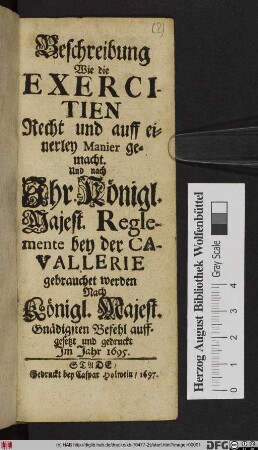 (2)
Beschreibung
Wie die
EXERCI-
TIEN
Recht und auff ei-
nerley Manier ge-
macht.
Und nach
Ihr. Königl.
Majest. Regle-
mente bey der CA-
VALLERIE
gebrauchet werden
Nach
Königl. Majest.
Gnädigsten Befehl auff-
gesetzt und gedruckt
Im Jahr 1695.
STADE/
Gedruckt bey Caspar Holwein/1697.
Herzog August Bibliothek Wolfenbüttel
Gray Scale
0 1 2 3 4
(c) HAB
DFG